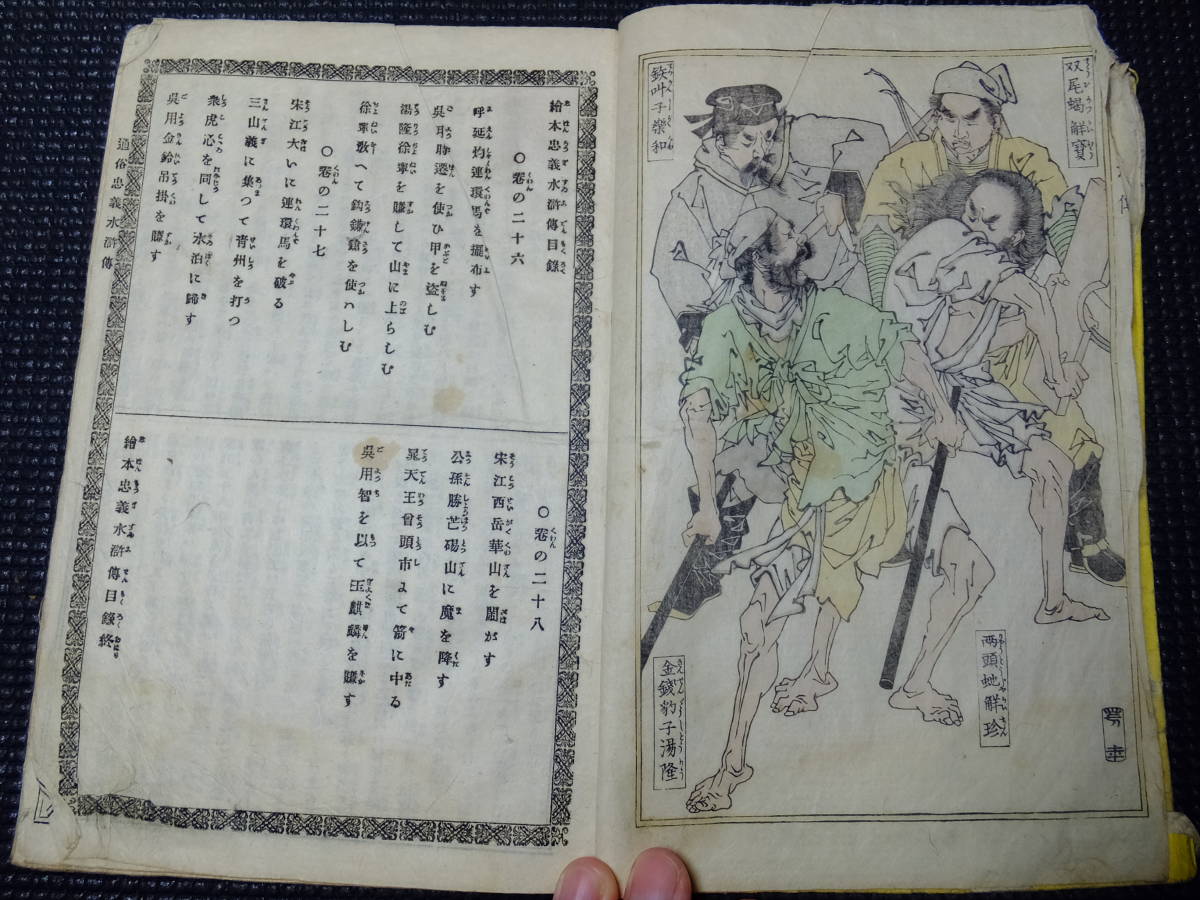 双尾蝎觧寶
鉄叫子樂和
両頭虵觧珍
金錢豹子湯隆
繪本忠義水滸傳目錄
○卷の二十六
呼延灼連環馬を擺布す
吳用時遷を使ひ甲を盗しむ
湯隆徐寧を賺して山に上らしむ
徐寧敎へて鈎鎌鎗を使ハしむ
○卷の二十七
宋江大いに連環馬を破る
三山義に集つて靑州を打つ
衆虎心を同して水泊に歸す
吳用金鈴吊掛を賺す
通俗忠義水滸傳
○卷の二十八
宋江西岳華山を閙がす
公孫勝芒碭山に魔を降す
晁天王曾頭市よて箭に中る
吳用智を以て玉麒麟を賺す
繪本忠義水滸傳目錄終